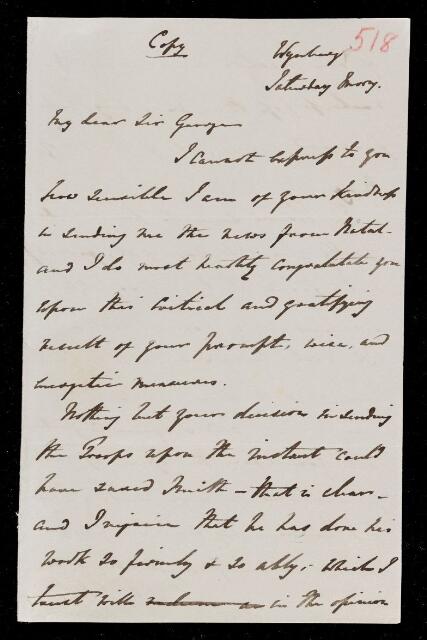 Copy
518
Wynberg
Saturday Morng.
My dear Sir George
I cannot express to you
how sensible I am of your kindness
in sending me the news from Natal -
and I do most heartily congratulate you
upon this critical and gratifying
result of your prompt, wise, and
energetic measures.
Nothing but your decision in sending
the Troops upon the instant could
have saved Smith - that is clear -
and I rejoice that he has done his
work so firmly & so ably; which I
trust will in the opinion